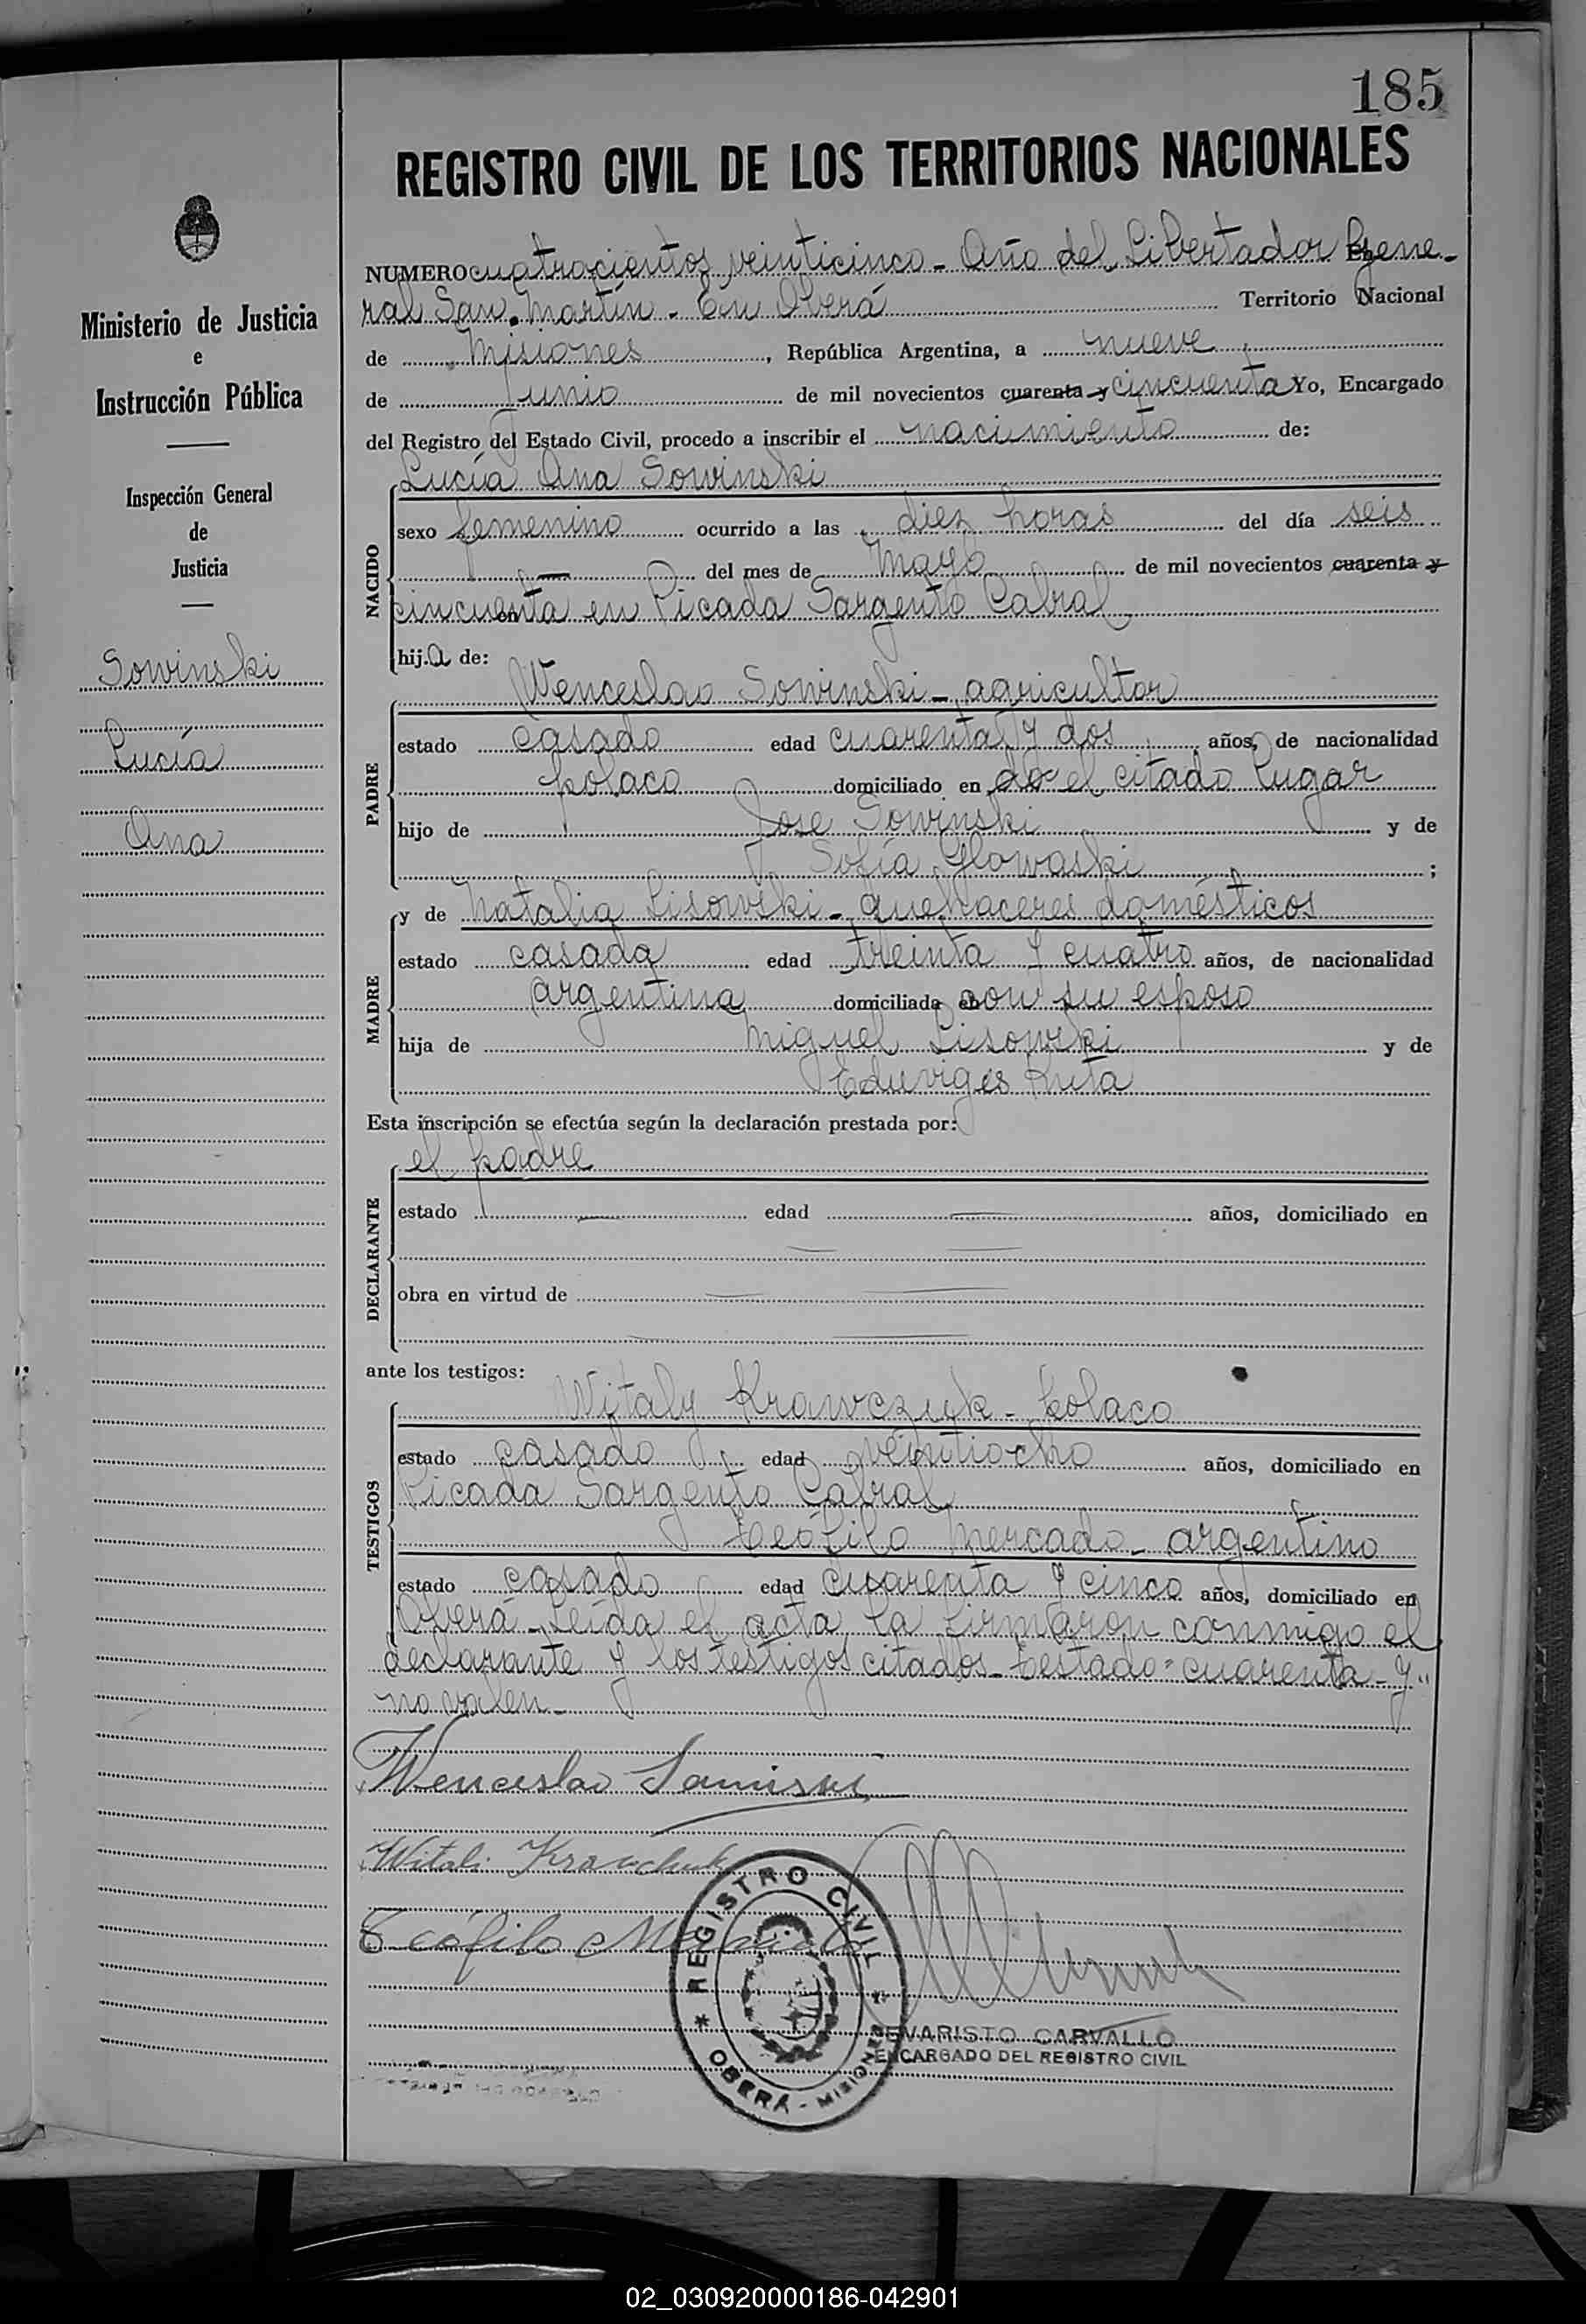 185
REGISTRO CIVIL DE LOS TERRITORIOS NACIONALES
Ministerio de Justicia
e
Instrucción Pública
Inspección General
de
Justicia
Sowinski
Lucía
Ana
NUMERO cuatrocientos veinticinco - Año del Libertador Gene-
ral San Martín - En Oberá Territorio Nacional
de Misiones, República Argentina, a nueve
de Junio de mil novecientos cuarenta y cincuenta Yo, Encargado
del Registro del Estado Civil, procedo a inscribir el nacimiento de:
Lucía Ana Sowinski
NACIDO
sexo femenino ocurrido a las diez horas del día seis
— del mes de Mayo de mil novecientos cuarenta y
cincuenta en Picada Sargento Cabral
hija de:
PADRE
Wenceslao Sowinski - agricultor
estado casado edad cuarenta y dos años, de nacionalidad
polaco domiciliado en el citado lugar
hijo de Jose Sowinski y de
Sofía Glowaski ;
MADRE
y de Natalia Lisowski - quehaceres domésticos
estado casada edad treinta y cuatro años, de nacionalidad
argentina domiciliada con su esposo
hija de Miguel Lisowski y de
Eduviges Kuta
Esta inscripción se efectúa según la declaración prestada por:
DECLARANTE
el padre
estado — edad — años, domiciliado en
obra en virtud de
ante los testigos:
TESTIGOS
Witaly Krawczuk - polaco
estado casado edad veintiocho años, domiciliado en
Picada Sargento Cabral
y Teófilo Mercado - argentino
estado casado edad cuarenta y cinco años, domiciliado en
Oberá - Leída el acta la firmaron conmigo el
declarante y los testigos citados - Testado "cuarenta - y"
no valen -
Wenceslao
Witali Krawchuk
Teófilo
* REGISTRO CIVIL *
OBERÁ - MISIONES
EVARISTO CARVALLO
ENCARGADO DEL REGISTRO CIVIL
02_030920000186-042901